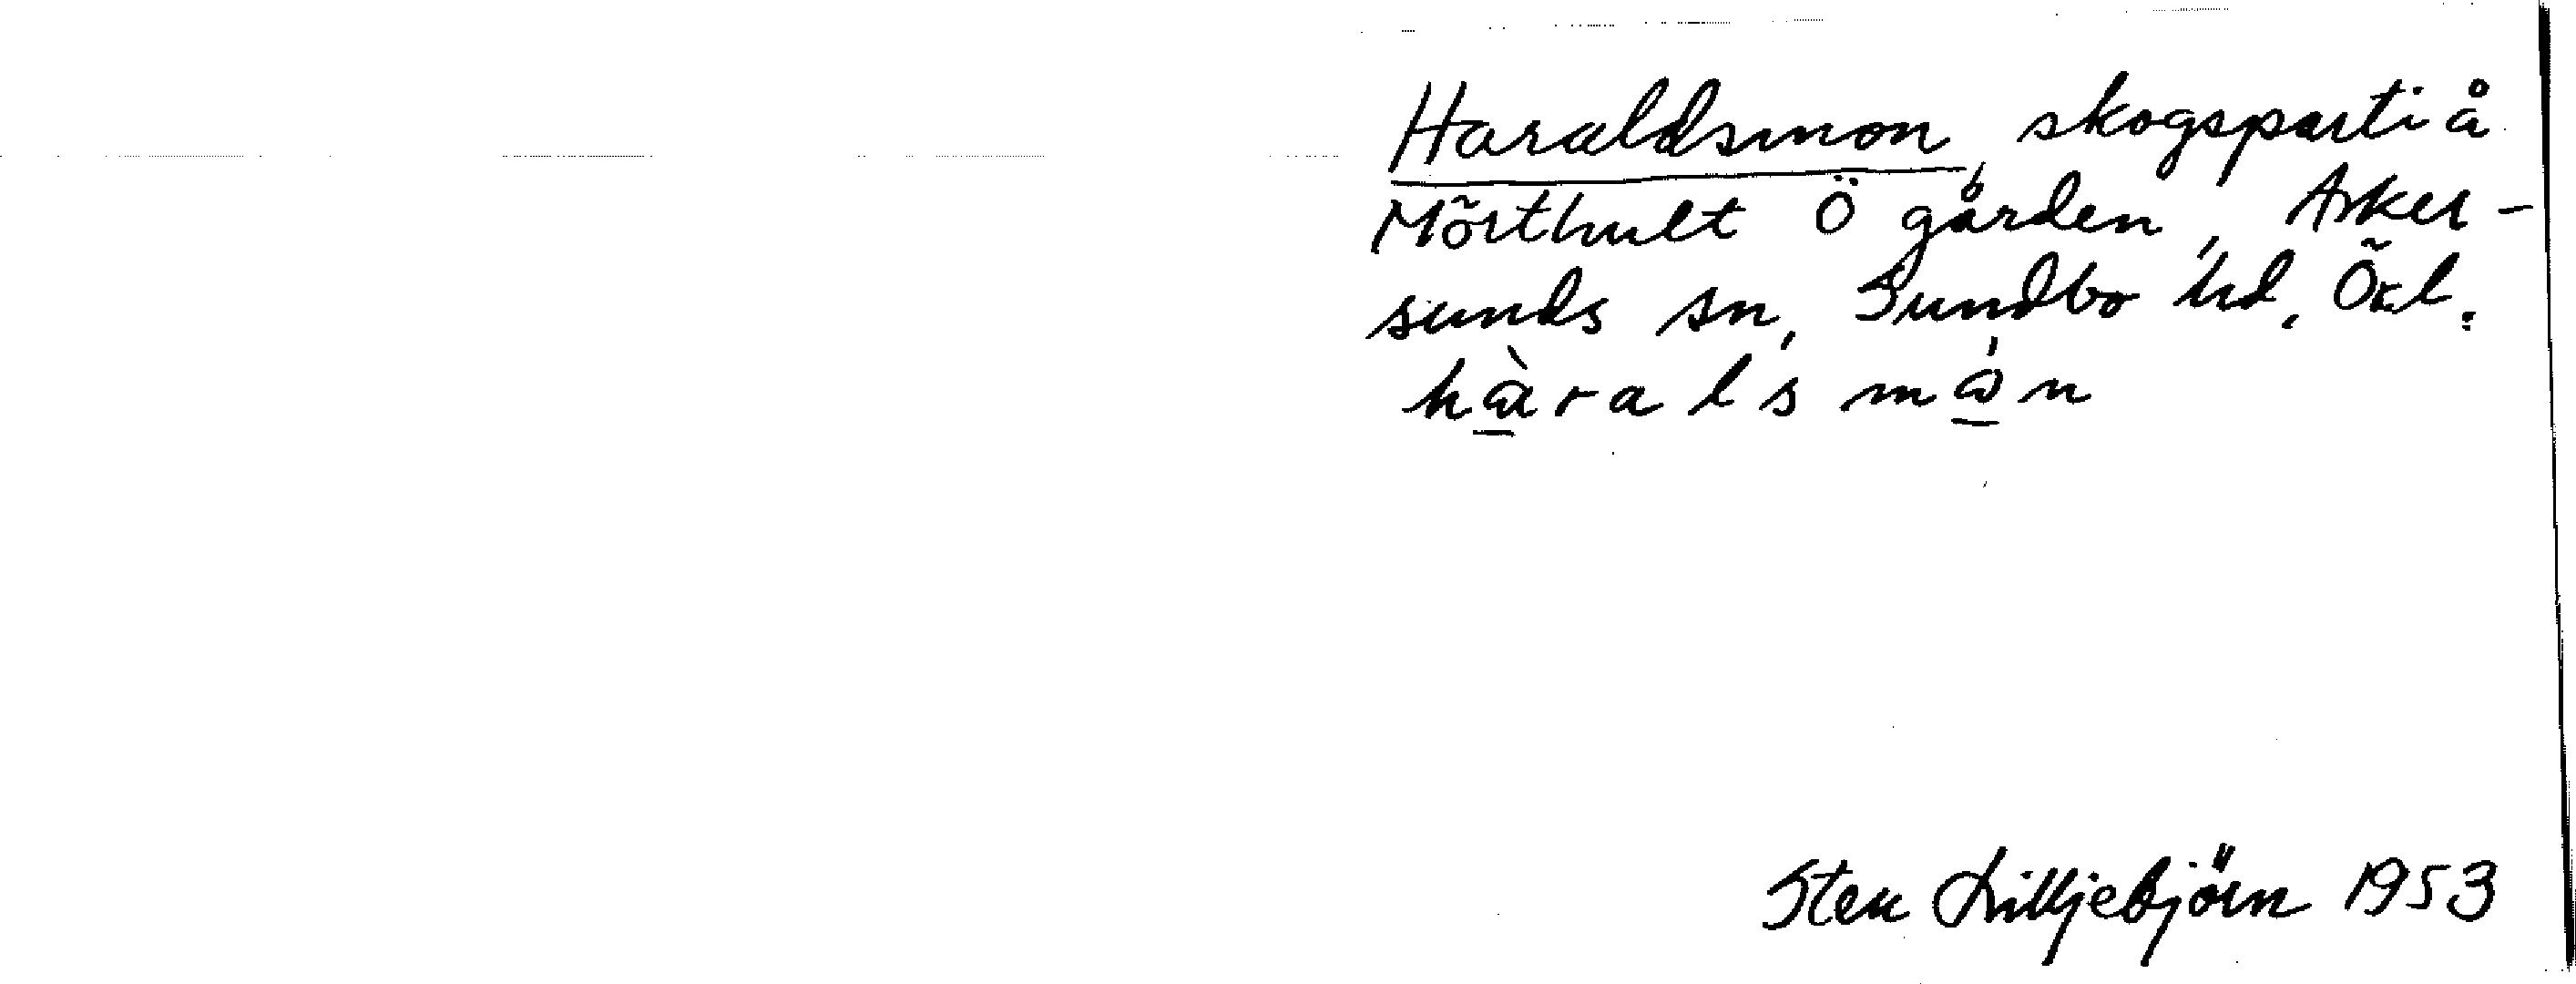 Haraldsmon, skogsparti å
Mörthult Ö gården, Asker-
sunds sn, Sundbo hd, Ökl.
hàralsmón
Sten Lilljebjörn 1953